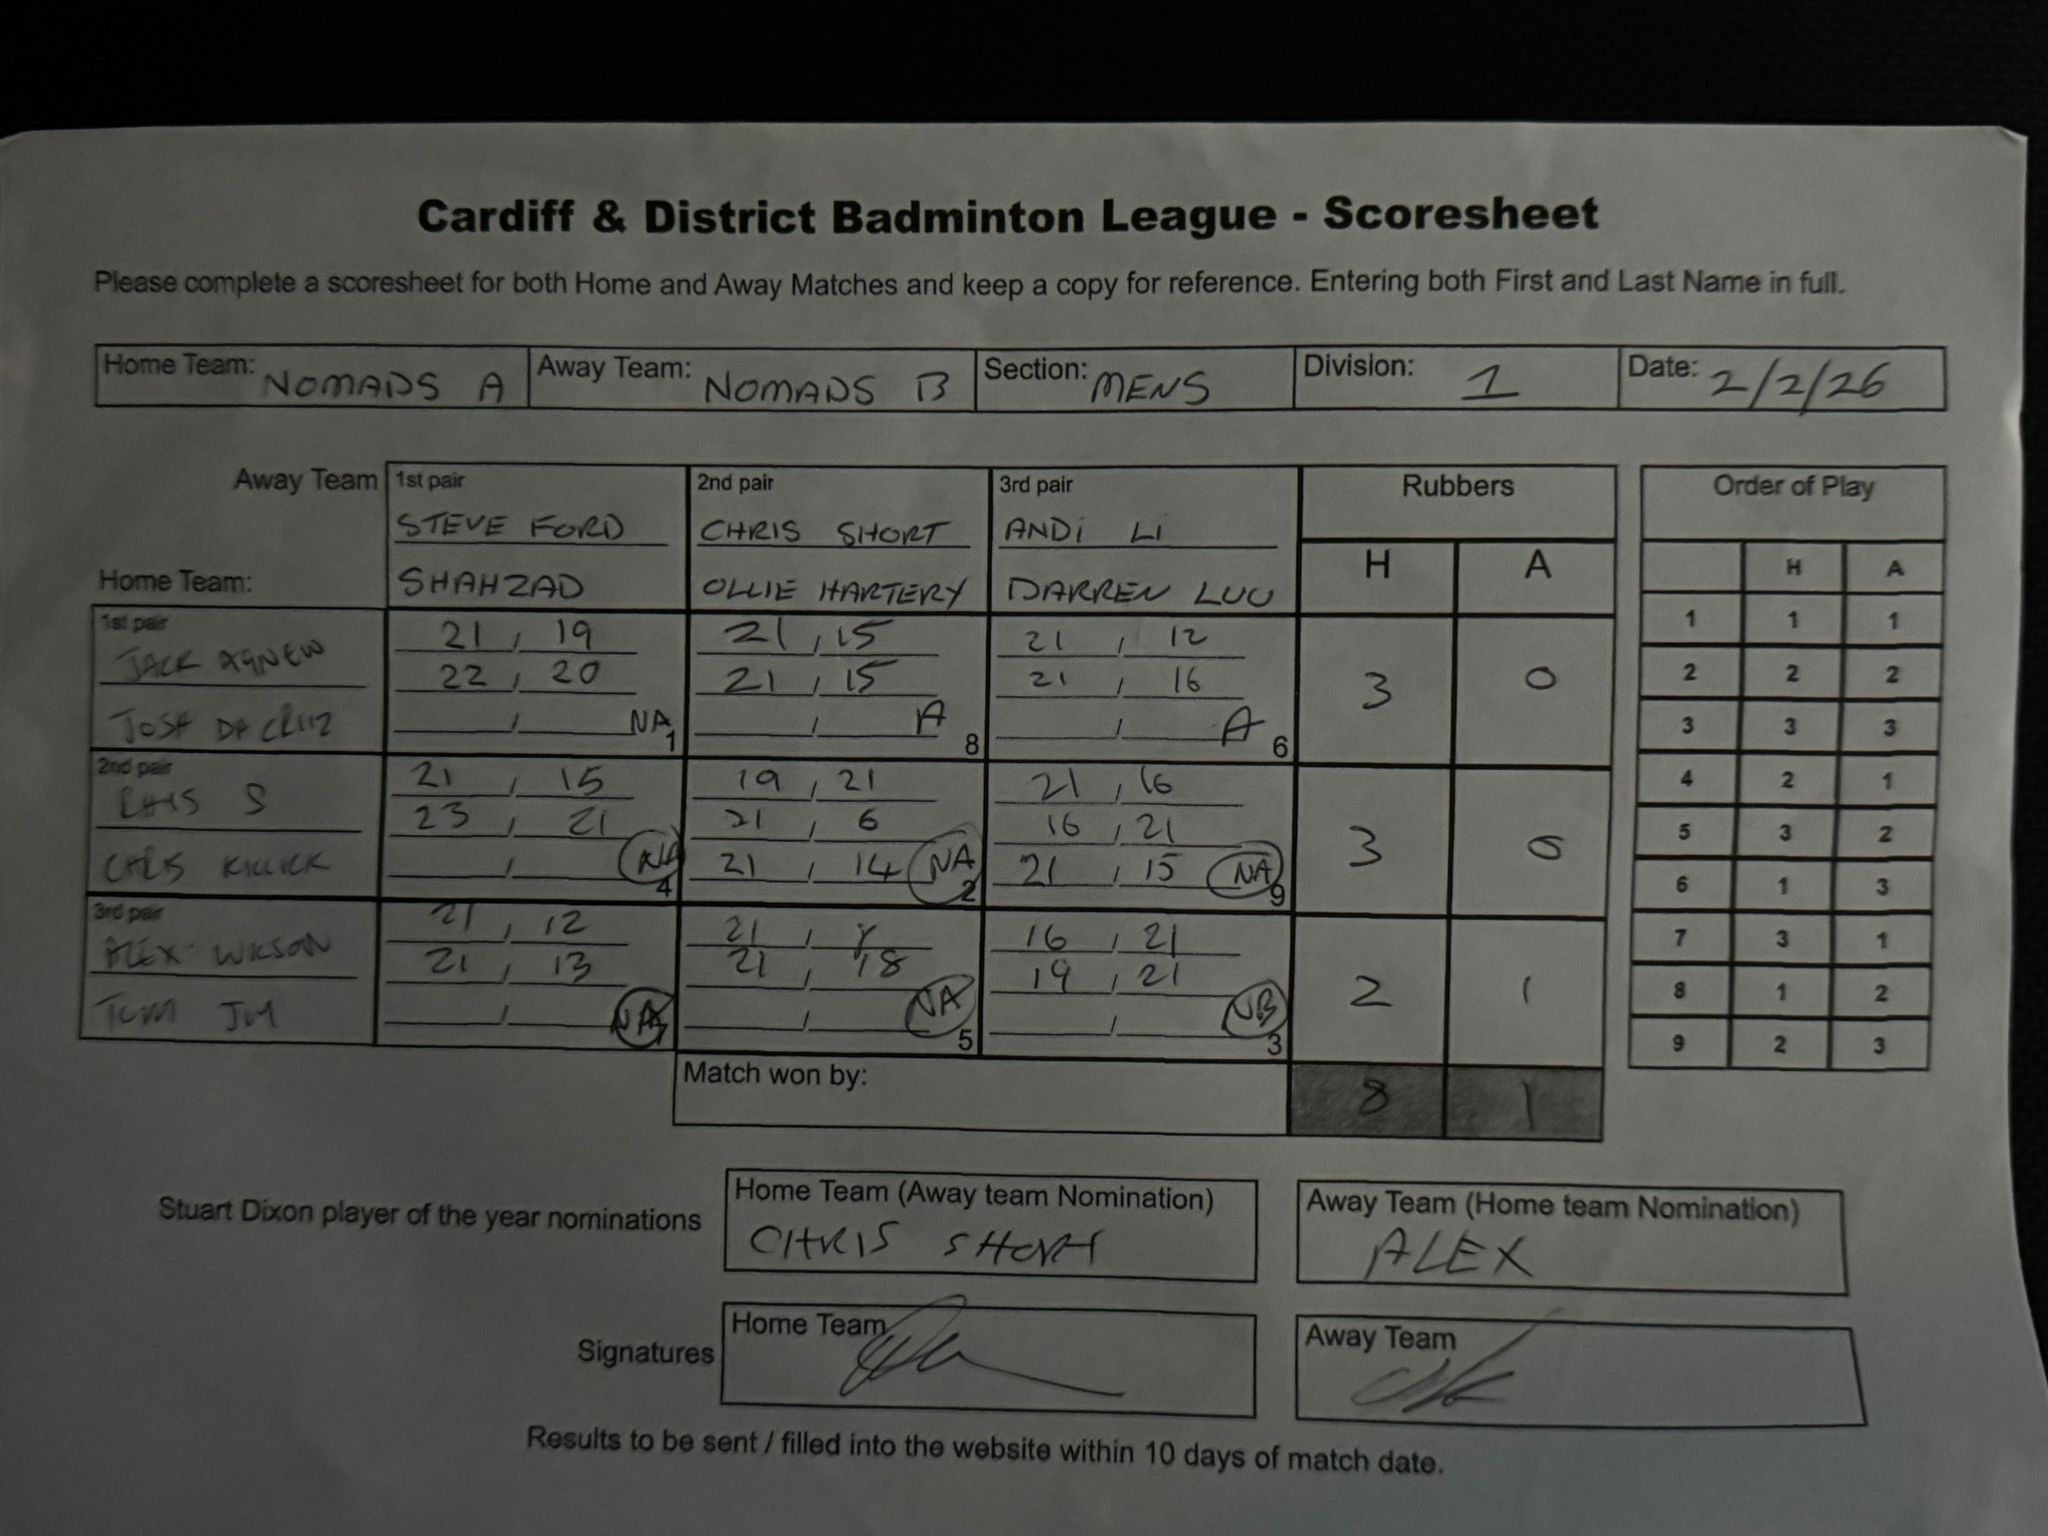 Cardiff & District Badminton League - Scoresheet
Please complete a scoresheet for both Home and Away Matches and keep a copy for reference. Entering both First and Last Name in full.
Home Team: NOMADS A Away Team: NOMADS B Section: MENS Division: 1 Date: 2/2/26
Away Team 1st pair 2nd pair 3rd pair Rubbers Order of Play
STEVE FORD CHRIS SHORT ANDi LI
H A H A
Home Team: SHAHZAD OLLIE HARTERY DARREN LUU
1st pair 21 , 19 21 , 15 21 , 12 1 1 1
JACK AGNEW 22 , 20 21 , 15 21 , 16 3 0 2 2 2
JOSH DA CRUZ , NA 1 , A 8 , A 6 3 3 3
2nd pair 21 , 15 19 , 21 21 , 16 4 2 1
S 23 , 21 21 , 6 16 , 21 3 0 5 3 2
CHRIS KILLICK , NA 4 21 , 14 NA 2 21 , 15 NA 9 6 1 3
3rd pair 21 , 12 21 , 16 , 21 7 3 1
ALEX WILSON 21 , 13 21 , 18 19 , 21 2 1 8 1 2
TOM , NA , NA 5 , NB 3 9 2 3
Match won by: 8 1
Stuart Dixon player of the year nominations
Home Team (Away team Nomination) Away Team (Home team Nomination)
CHRIS SHORT ALEX
Signatures Home Team Away Team
Results to be sent / filled into the website within 10 days of match date.